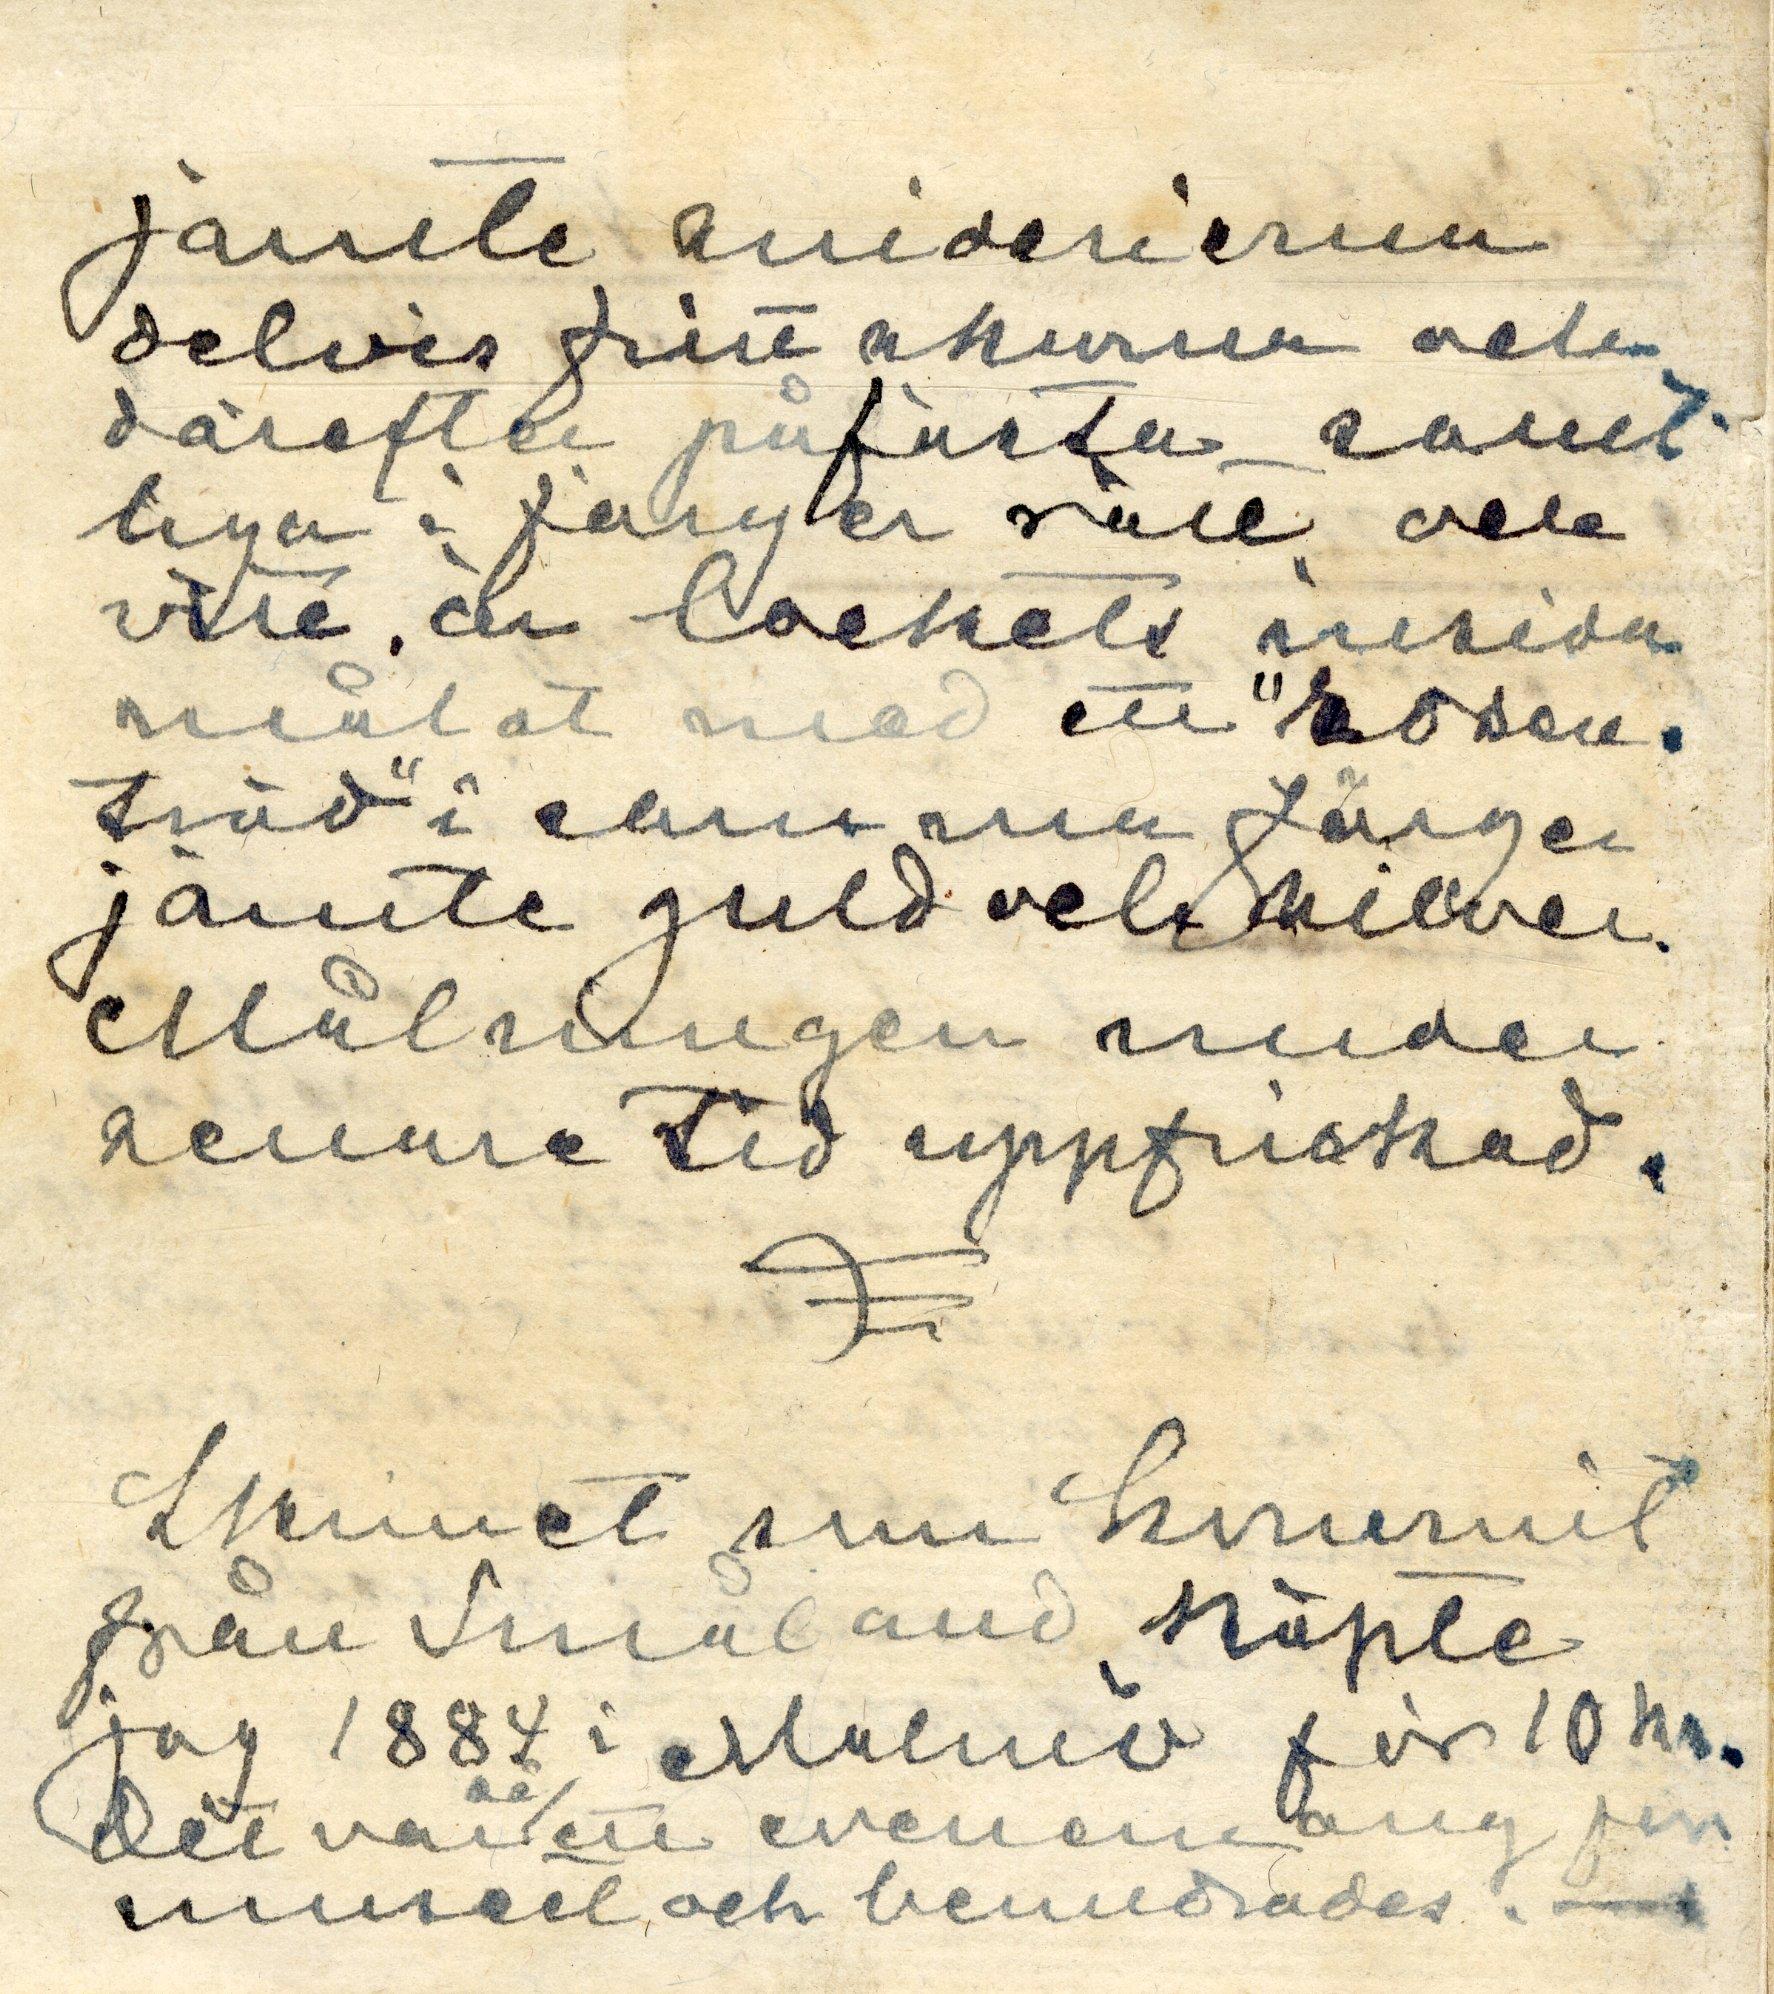 jämte sniderierna
delvis fritt skurna och
därefter påfästa samt
liga i färger rött och
vitt, är lockets insida
målat med ett "Rosen-
träd" i samma färger
jämte guld och silver.
Målningen under
senare tid uppfriskad.
Skrinet som kommit
från Småland, köpte
jag 1884 i Malmö för 10 kr.
Det var då ett evenemang för
museet och beundrades. —